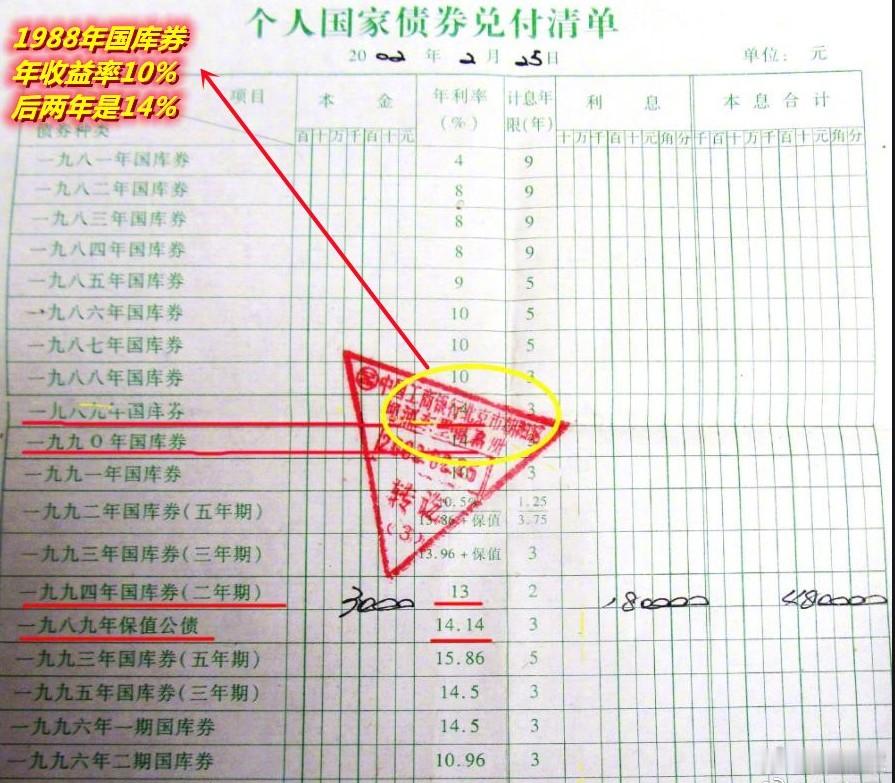 个人国家债券兑付清单
1988年国库券
年收益率10%
后两年是14%
2002年2月25日 单位：元
项目 本金 年利率(%) 计息年限(年) 利息 本息合计
债券种类 百十万千百十元 十万千百十元角分 千百十万千百十元角分
一九八一年国库券 4 9
一九八二年国库券 8 9
一九八三年国库券 8 9
一九八四年国库券 8 9
一九八五年国库券 9 5
一九八六年国库券 10 5
一九八七年国库券 10 5
一九八八年国库券 10 3
一九八九年国库券 3
一九九0年国库券
一九九一年国库券 3
一九九二年国库券(五年期) 1.25
+保值 3.75
一九九三年国库券(三年期) 13.96+保值 3
一九九四年国库券(二年期) 3000 13 2 180000 480000
一九八九年保值公债 14.14 3
一九九三年国库券(五年期) 15.86 5
一九九五年国库券(三年期) 14.5 3
一九九六年一期国库券 14.5 3
一九九六年二期国库券 10.96 3
中国工商银行北京市朝阳
转讫
(3)